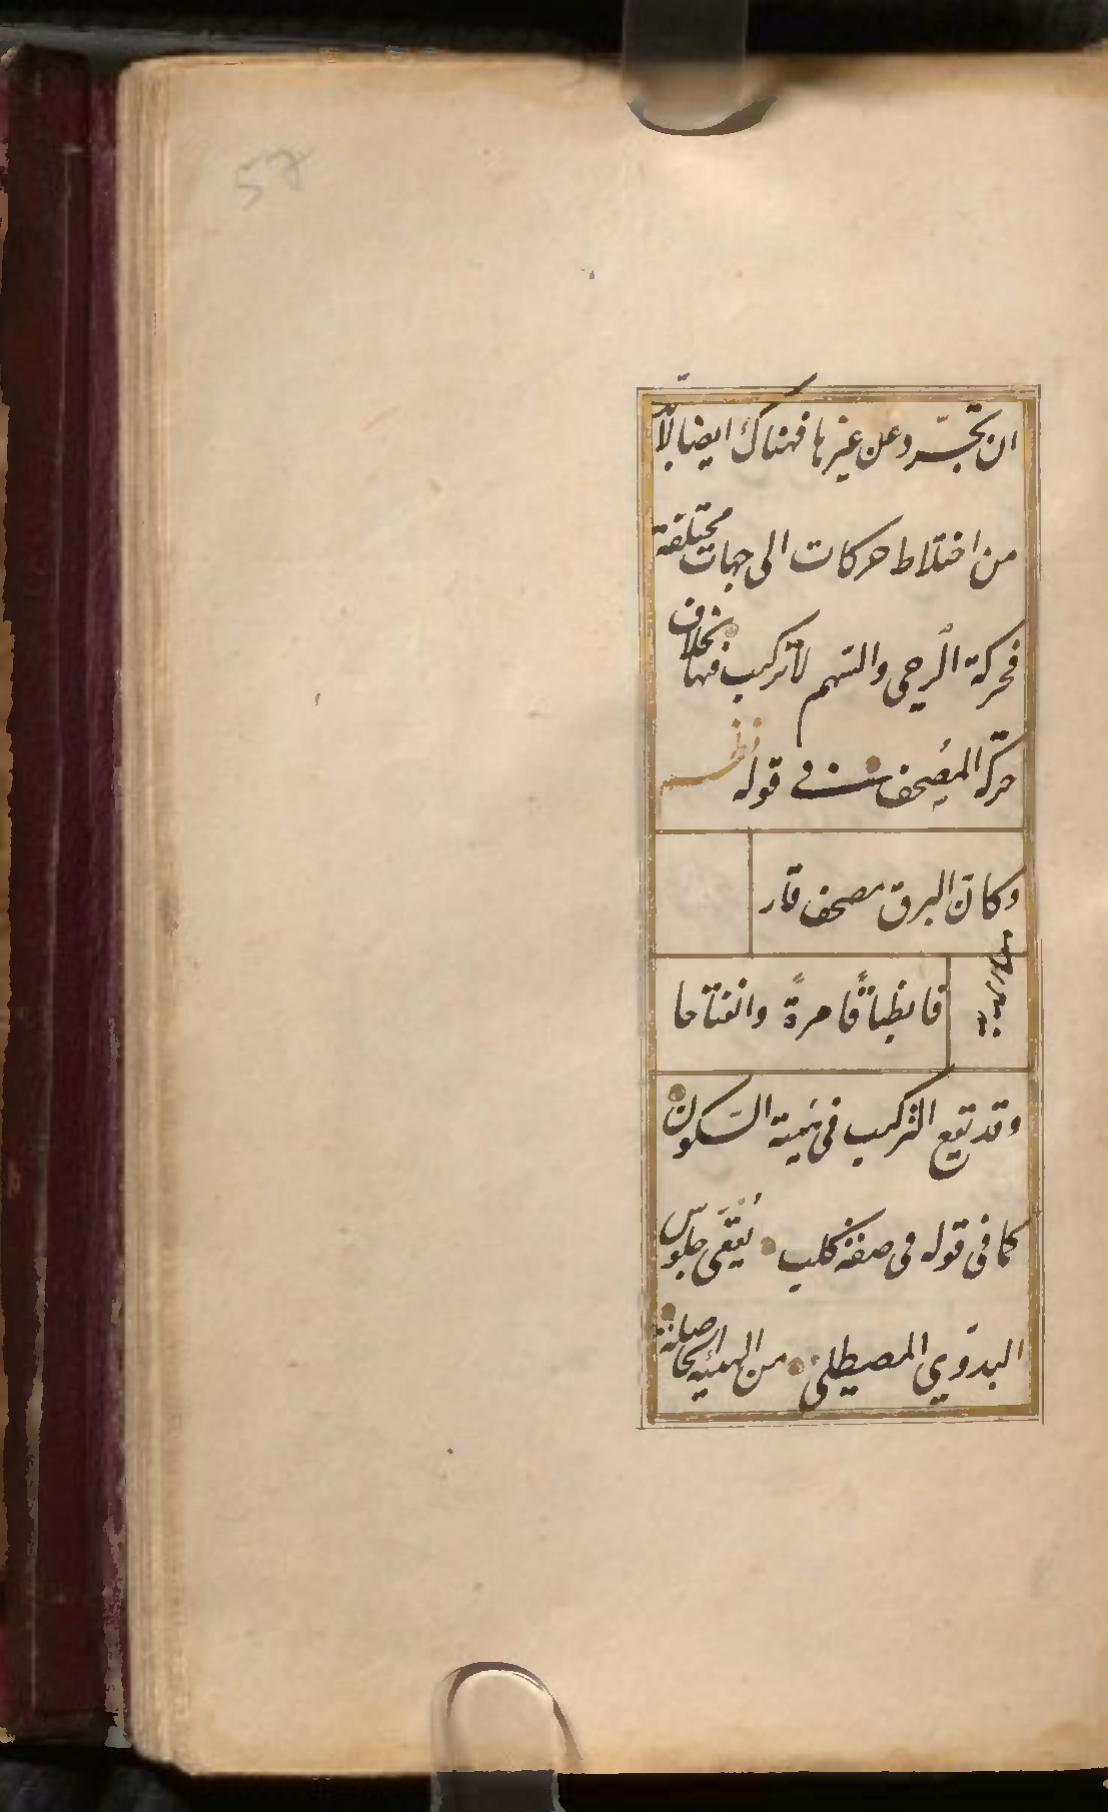 57
ان تجرّد عن غيرها فهناك ايضا لابدّ
من اختلاط حركات الى جهات مختلفة
فحركة الرحى والسّهم لا تركيب فيها بخلاف
حركة المصحف في قوله نظم
وكان البرق مصحف قار
فانطباقًا مرةً وانفتاحا
وقد تقع التركيب في هيئة السّكون
كما في قوله في صفة كلب يقعى جلوس
البدوي المصطلى من الهيئة الحاصلة